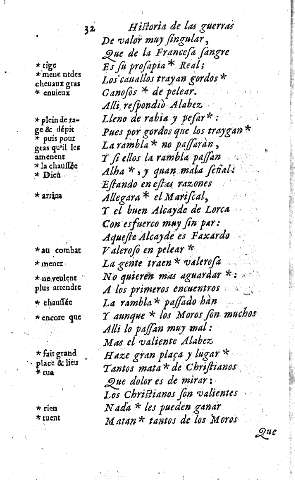 32 Historia de las guerras
De valor muy singular,
Que de la Francesa sangre
* tige Es su prosapia * Real;
* menez tdes Los cauallos trayan gordos *
cheuaux gras
* enuieux Ganosos * de pelear.
Alli respondiò Alabez
* plein de ra- Lleno de rabia y pesar * :
ge & dépit
* puis pour Pues por gordos que los traygan *
gras qu'il les La rambla * no passaràn,
amenent Y si ellos la rambla passan
* la chaussée Alha *, y quan mala señal:
* Dieu
Estando en estas razones
* arriua Allegara * el Mariscal,
Y el buen Alcayde de Lorca
Con esfuerço muy sin par:
Aqueste Alcayde es Faxardo
* au combat Valeroso en pelear *
* menez La gente traen * valerosa
* ne veulent No quieren mas aguardar * :
plus attendre A los primeros encuentros
* chaussée La rambla * passado hàn
* encore que Y aunque * los Moros son muchos
Alli lo passan muy mal:
Mas el valiente Alabez
* fait grand Haze gran plaça y lugar *
place & lieu
* tua Tantos mata * de Christianos
Que dolor es de mirar;
Los Christianos son valientes
* rien Nada * les pueden ganar
* tuent Matan * tantos de los Moros
Que